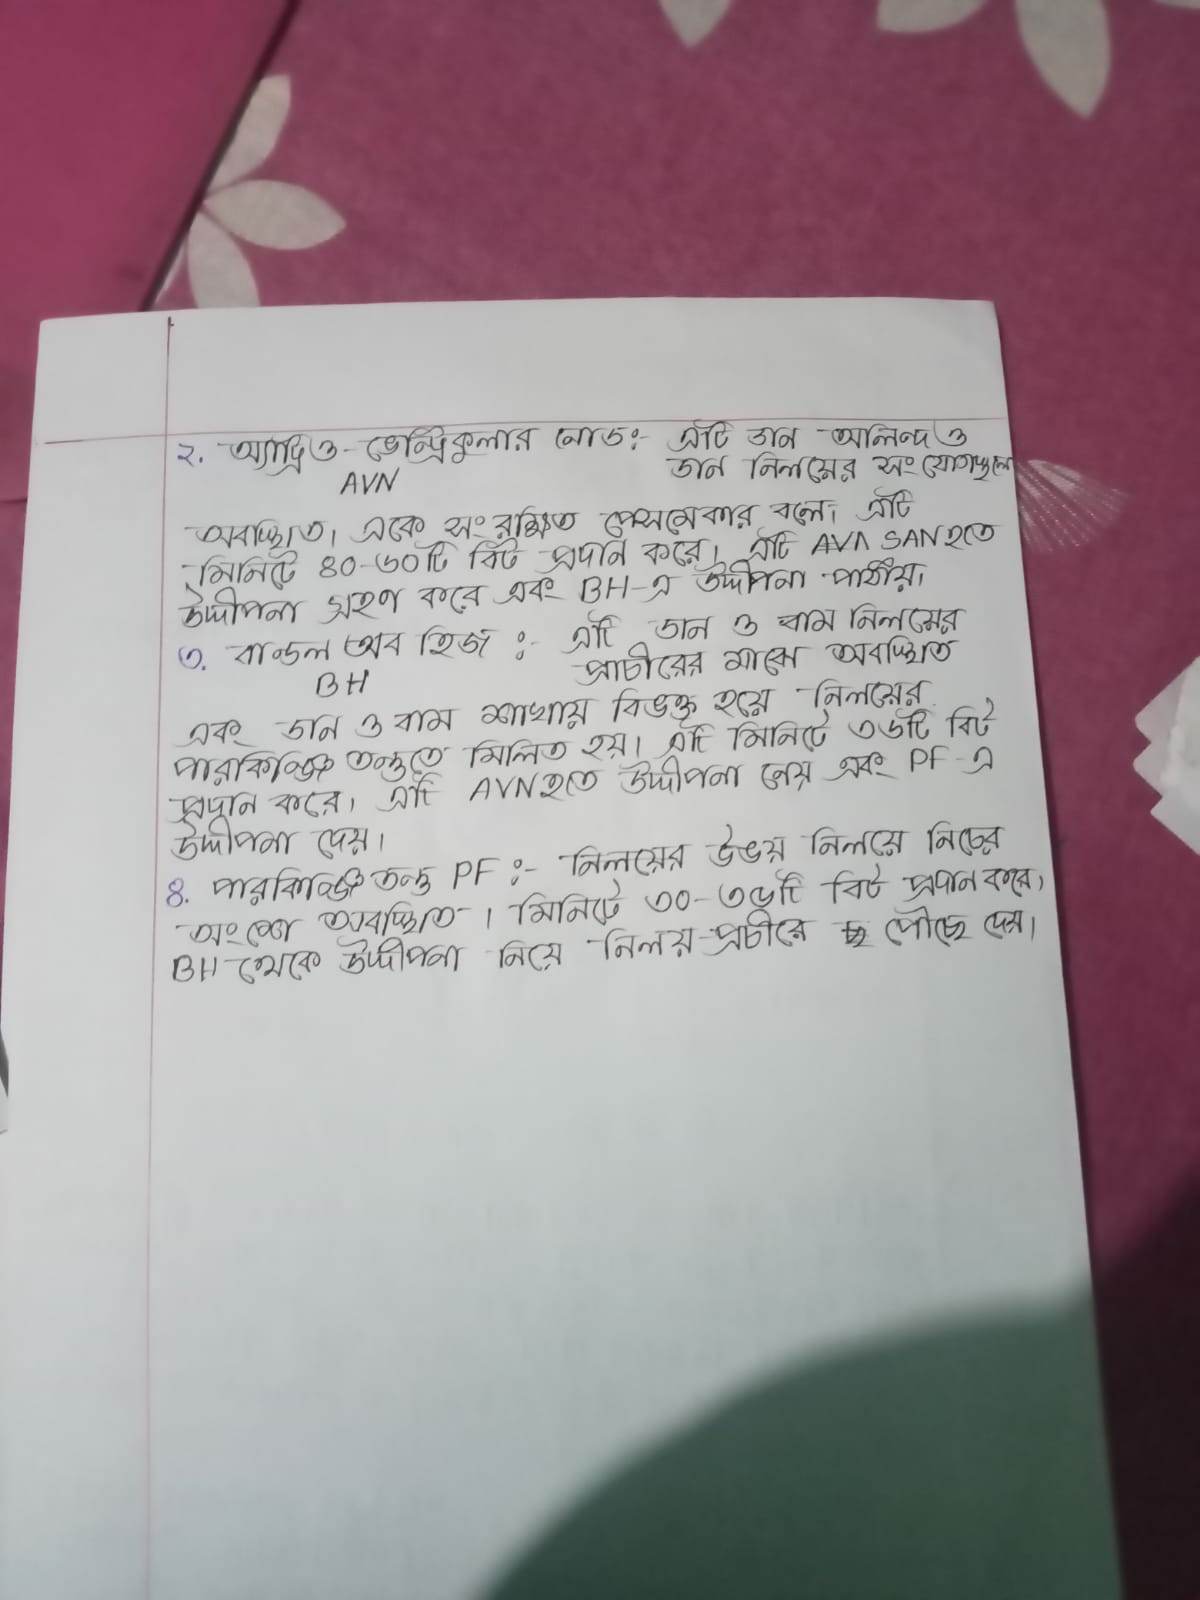 ২. অ্যাট্রিও-ভেন্ট্রিকুলার নোড:- এটি ডান অলিন্দ ও
AVN ডান নিলয়ের সংযোগস্থলে
অবস্থিত। একে সংরক্ষিত পেসমেকার বলে। এটি
মিনিটে ৪০-৬০টি বিট প্রদান করে। এটি SAN হতে
উদ্দীপনা গ্রহণ করে এবং BH-এ উদ্দীপনা পাঠায়।
৩. বান্ডল অব হিজ :- এটি ডান ও বাম নিলয়ের
BH প্রাচীরের মাঝে অবস্থিত
এবং ডান ও বাম শাখায় বিভক্ত হয়ে নিলয়ের
পারকিঞ্জি তন্তুতে মিলিত হয়। এটি মিনিটে ৩৬টি বিট
প্রদান করে। এটি AVN হতে উদ্দীপনা নেয় এবং PF-এ
উদ্দীপনা দেয়।
৪. পারকিঞ্জি তন্তু PF :- নিলয়ের উভয় নিলয়ে নিচের
অংশে অবস্থিত। মিনিটে ৩০-৩৫টি বিট প্রদান করে।
BH থেকে উদ্দীপনা নিয়ে নিলয় প্রচীরে পৌছে দেয়।